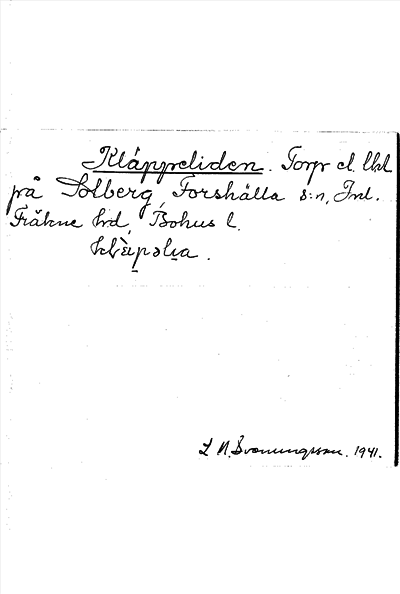 Kläppeliden. Torp el. lht
på Solberg, Forshälla s:n, Inl.
Fräkne hd, Bohus l.
klɛ̀pəlıa.
L N. Svanungsson. 1941.